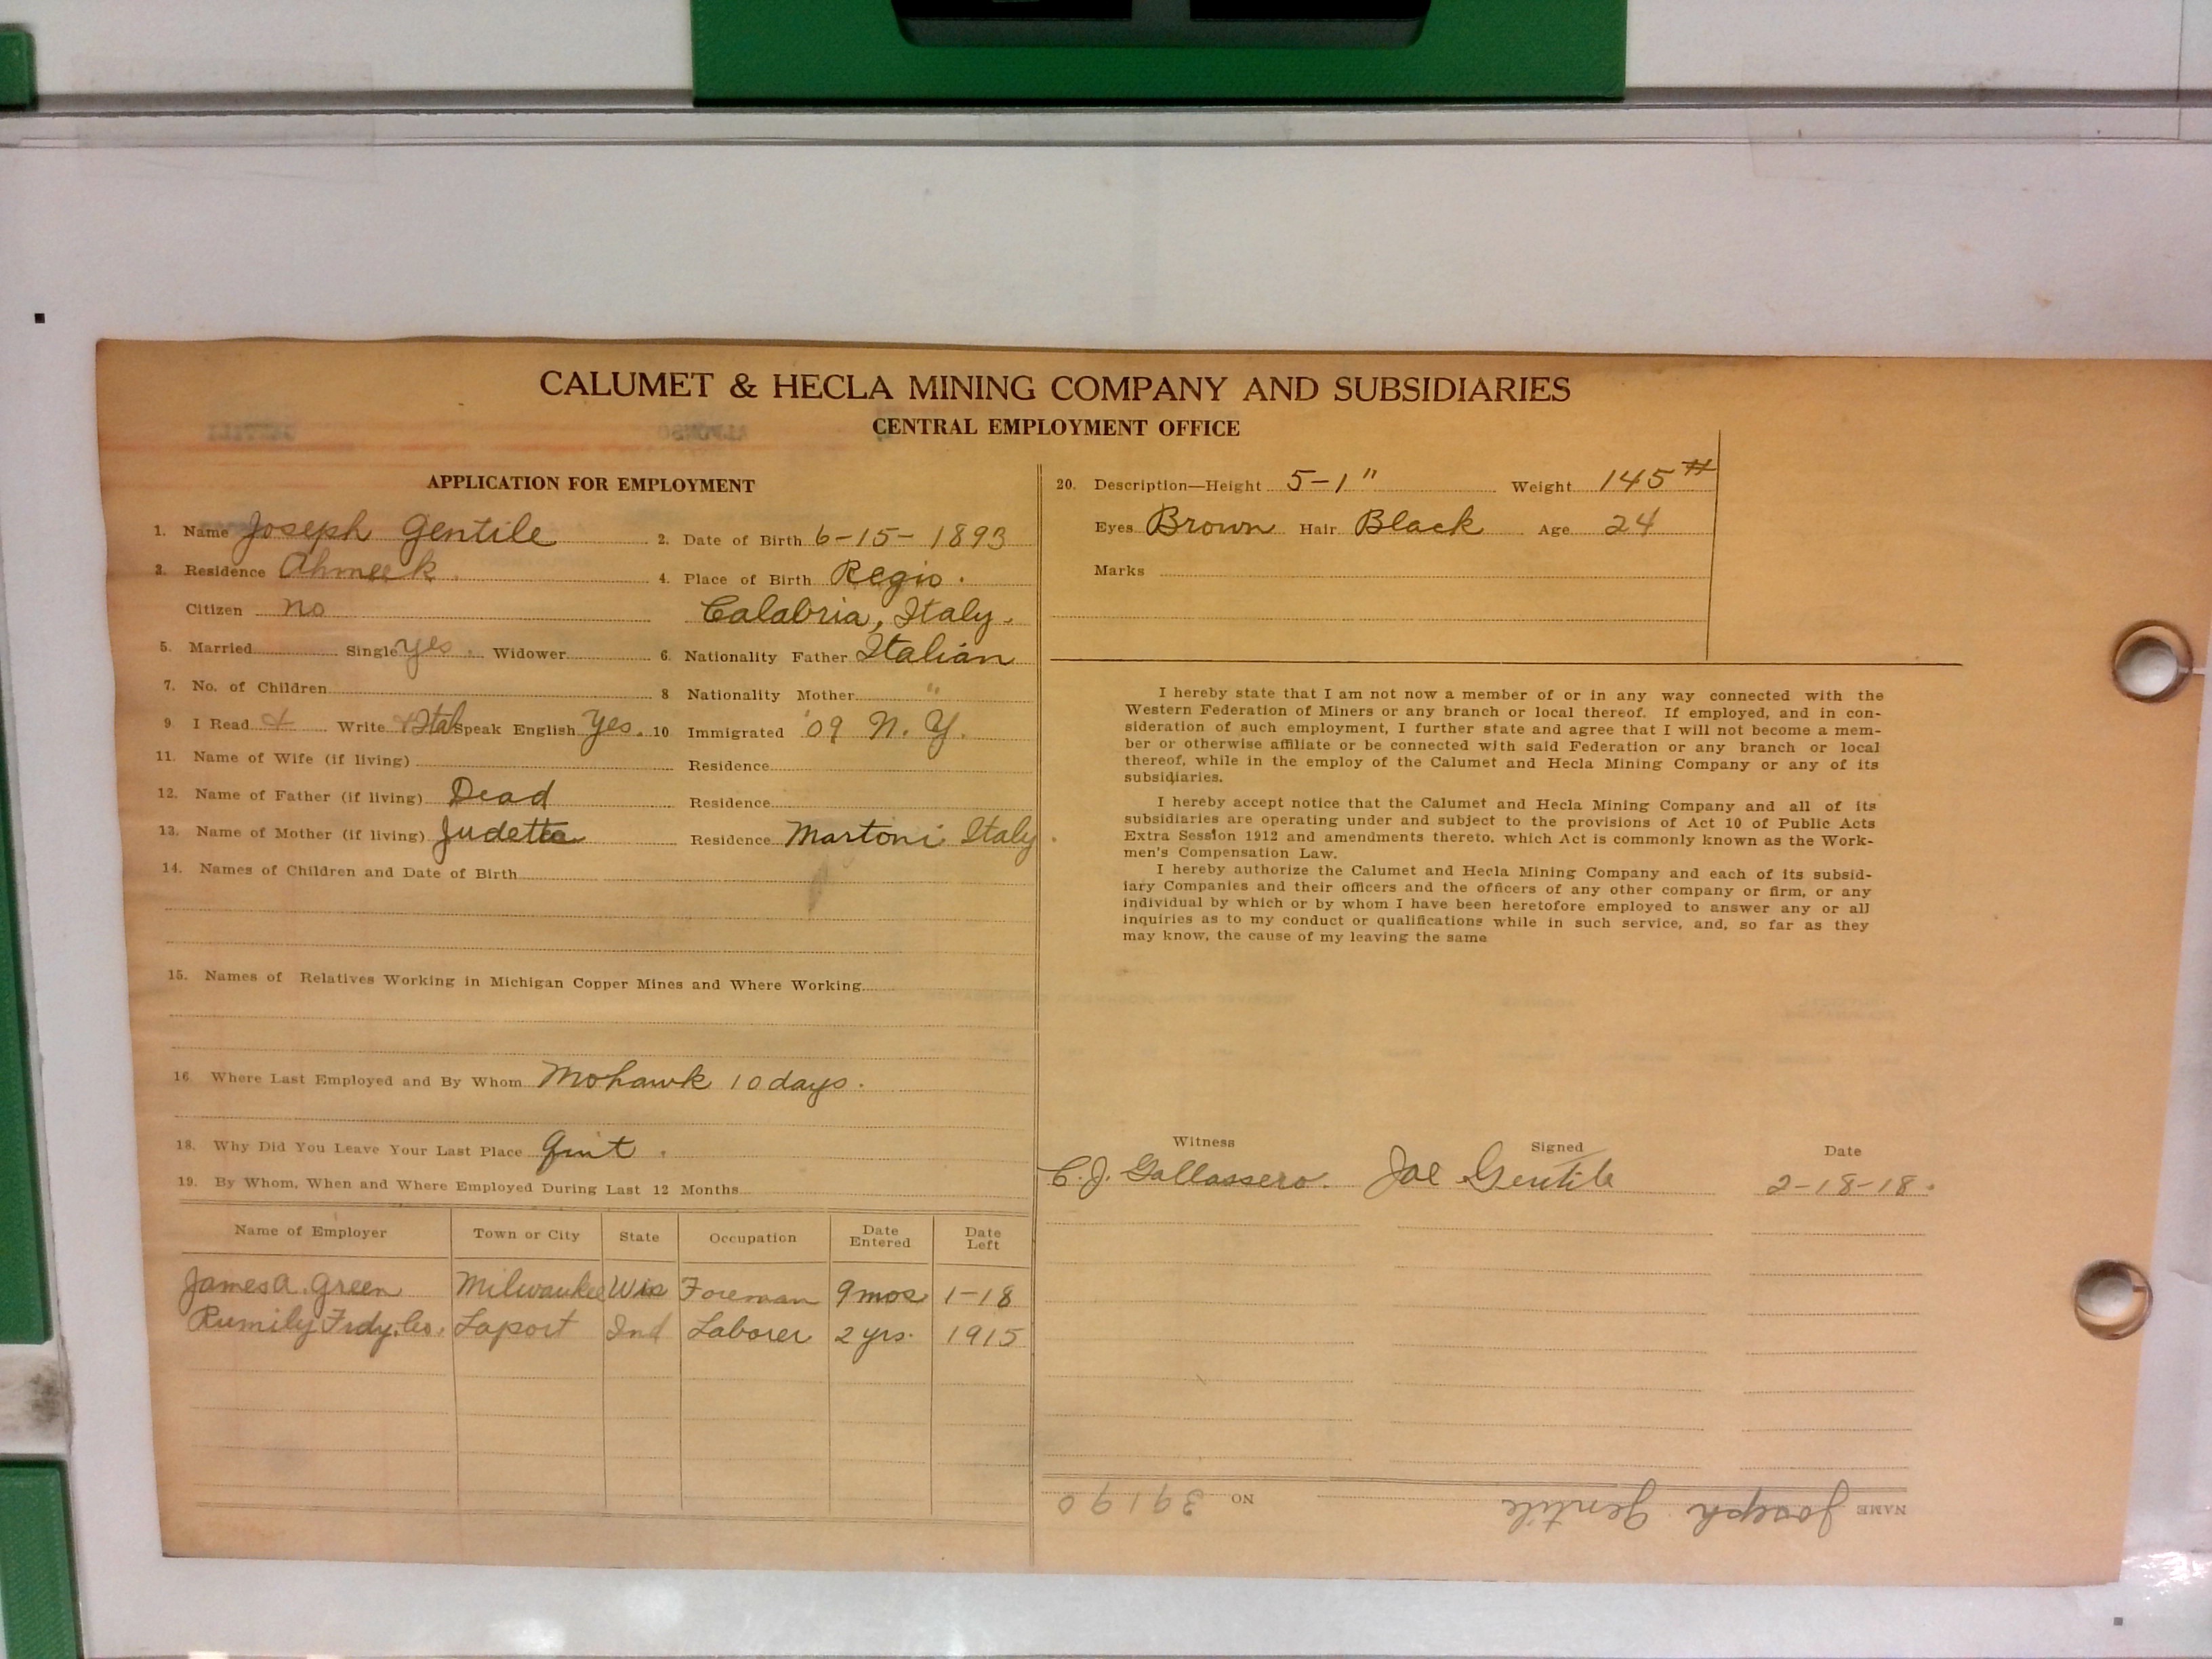 CALUMET & HECLA MINING COMPANY AND SUBSIDIARIES
CENTRAL EMPLOYMENT OFFICE
APPLICATION FOR EMPLOYMENT
1. Name Joseph Gentile 2. Date of Birth 6-15-1893
3. Residence Ahmeek. 4. Place of Birth Regio.
Citizen no Calabria, Italy.
5. Married Single yes. Widower 6. Nationality Father Italian
7. No. of Children 8 Nationality Mother "
9. I Read + Write + Ital Speak English Yes. 10 Immigrated '09 N. Y.
11. Name of Wife (if living) Residence
12. Name of Father (if living) Dead Residence
13. Name of Mother (if living) Judetta Residence Martoni Italy.
14. Names of Children and Date of Birth
15. Names of Relatives Working in Michigan Copper Mines and Where Working
16 Where Last Employed and By Whom Mohawk 10 days.
18. Why Did You Leave Your Last Place Quit.
19. By Whom, When and Where Employed During Last 12 Months
Name of Employer Town or City State Occupation Date Entered Date Left
James A. Green Milwaukee Wis Foreman 9 mos 1-18
Rumily Frdy. Co. Laport Ind Laborer 2 yrs. 1915
20. Description—Height 5-1" Weight 145 #
Eyes Brown Hair Black Age 24
Marks
I hereby state that I am not now a member of or in any way connected with the
Western Federation of Miners or any branch or local thereof. If employed, and in con-
sideration of such employment, I further state and agree that I will not become a mem-
ber or otherwise affiliate or be connected with said Federation or any branch or local
thereof, while in the employ of the Calumet and Hecla Mining Company or any of its
subsidiaries.
I hereby accept notice that the Calumet and Hecla Mining Company and all of its
subsidiaries are operating under and subject to the provisions of Act 10 of Public Acts
Extra Session 1912 and amendments thereto, which Act is commonly known as the Work-
men's Compensation Law.
I hereby authorize the Calumet and Hecla Mining Company and each of its subsid-
iary Companies and their officers and the officers of any other company or firm, or any
individual by which or by whom I have been heretofore employed to answer any or all
inquiries as to my conduct or qualifications while in such service, and, so far as they
may know, the cause of my leaving the same
Witness Signed Date
C. J. Gallassero. Joe Gentile 2-18-18.
NAME Joseph Gentile NO 39190